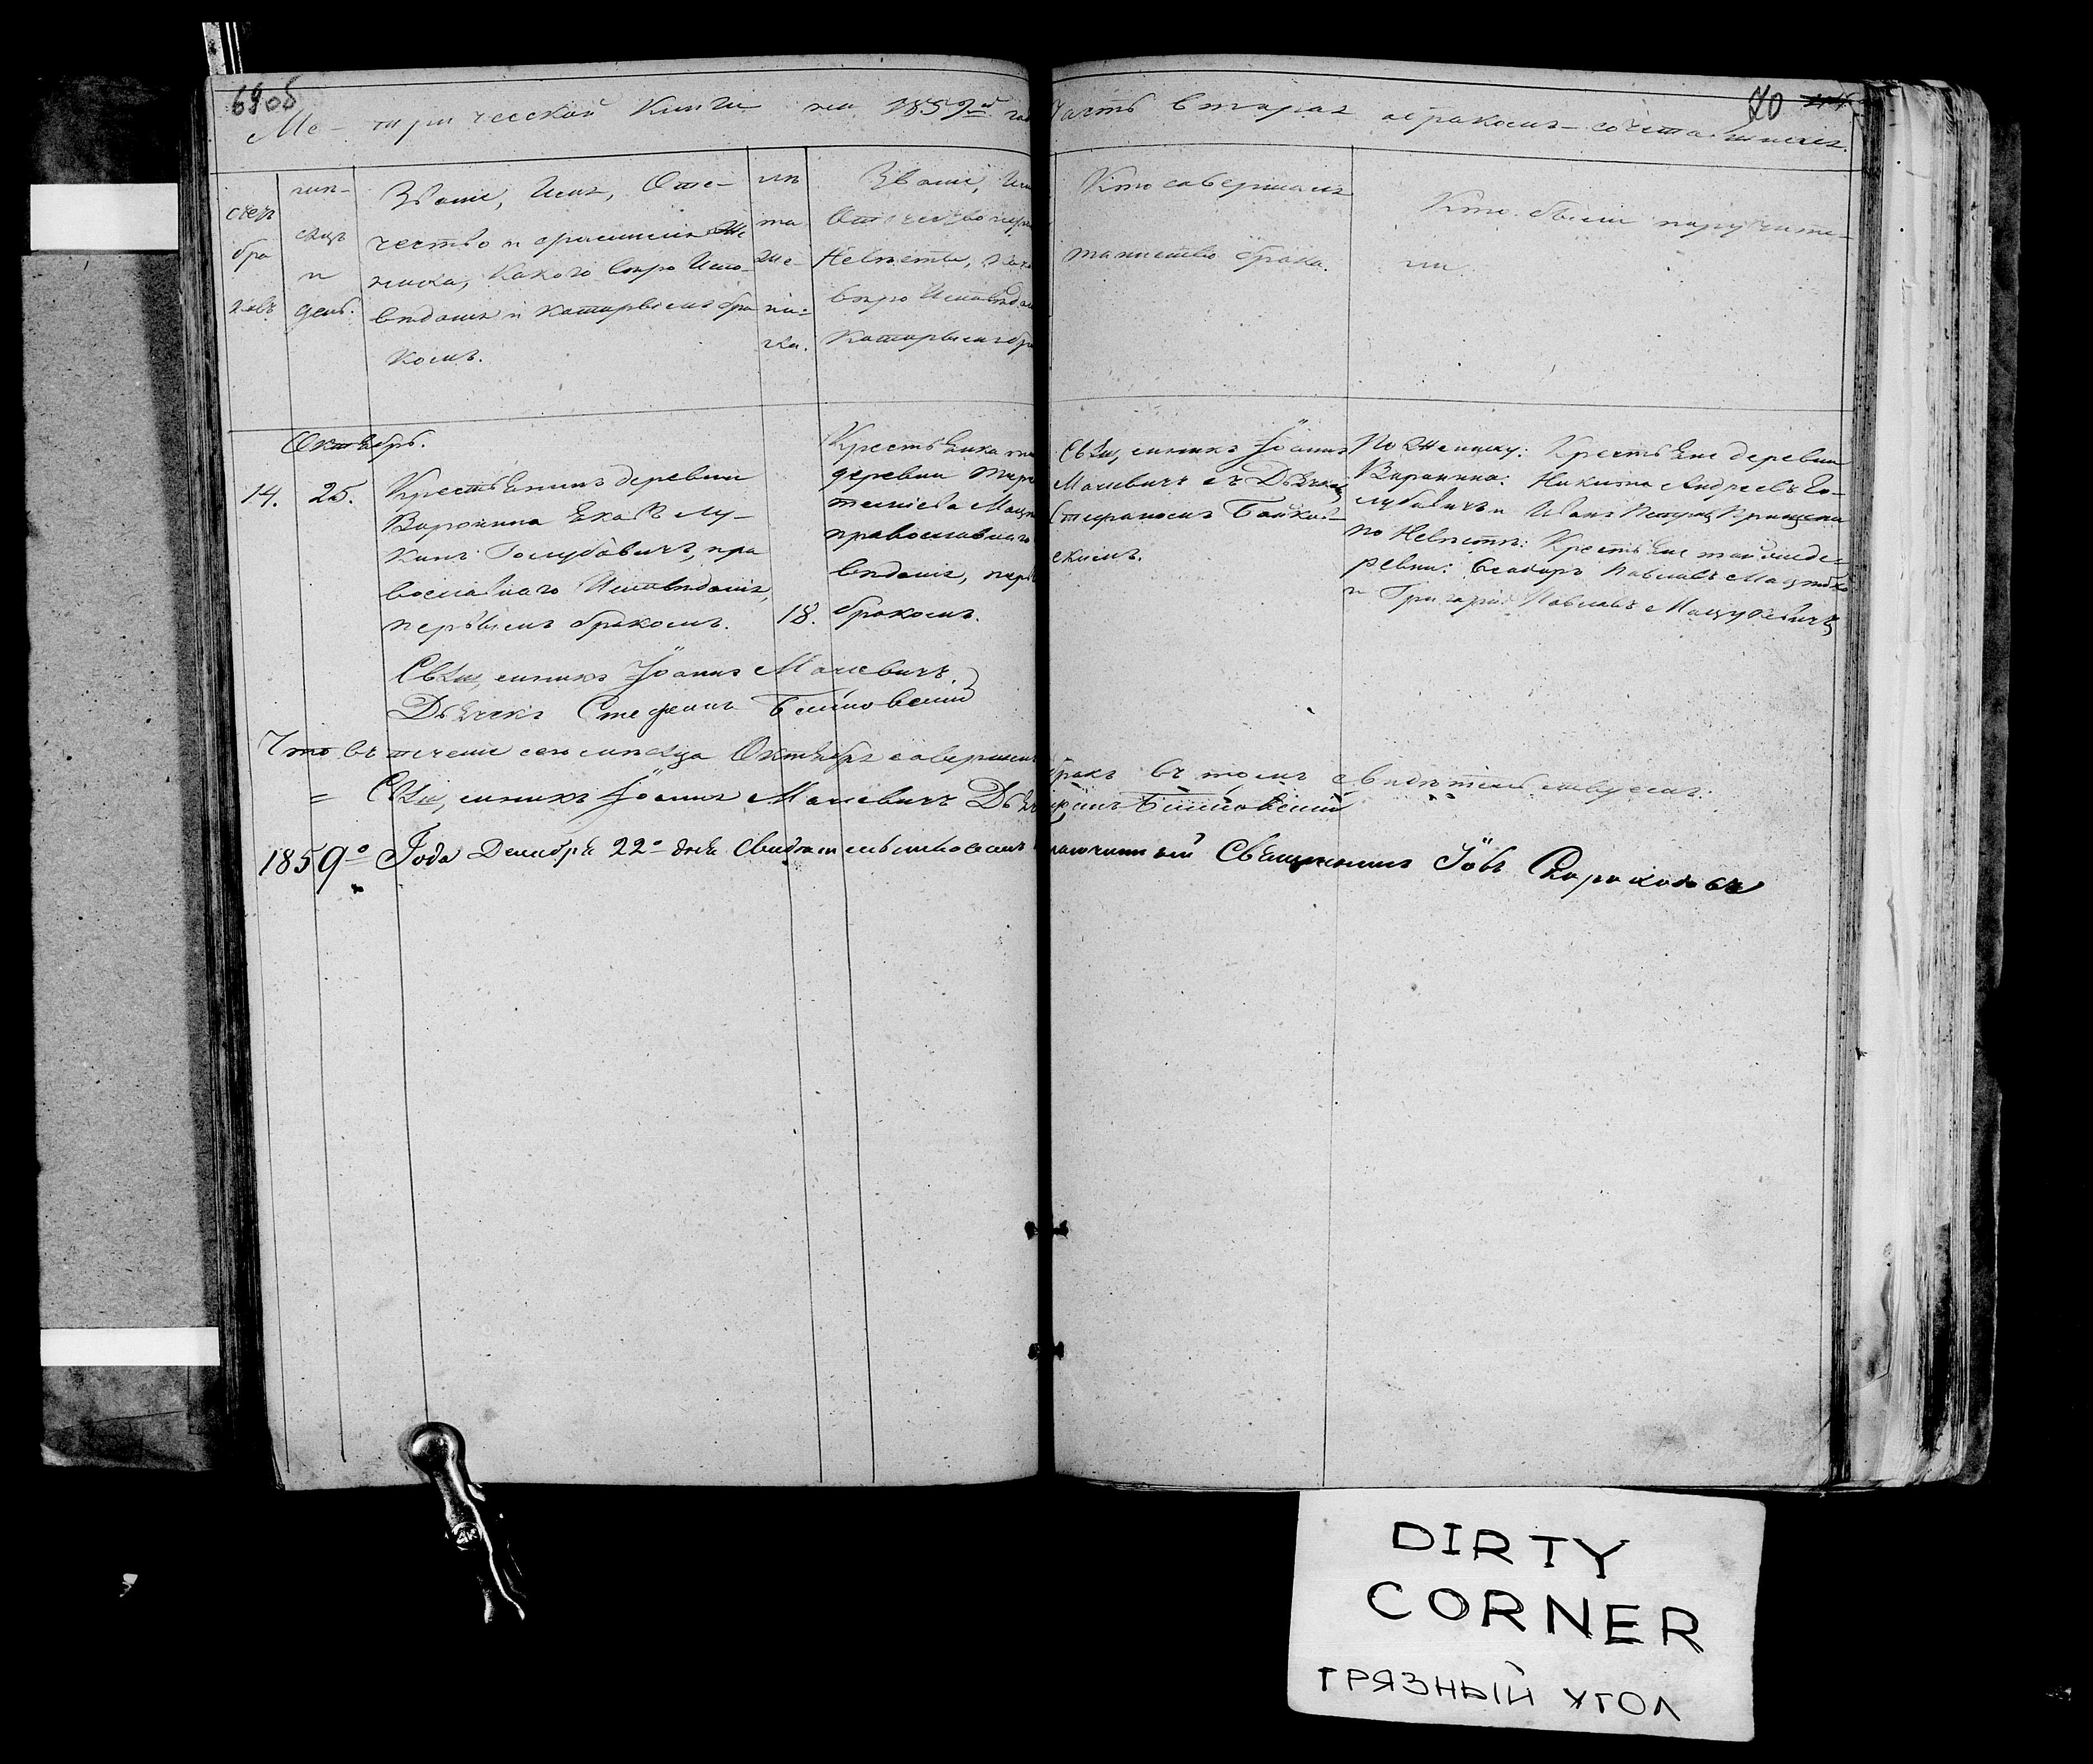 69 об
Ме-трической Книги на 1859й год
Часть вторая о бракомъ-сочетавшихся.
70
счетъ бра ковъ
мѣ- сяцъ и день.
Званіе, Имя, Оте-
чество и фамилія Же
ниха, какого вѣро Испо-
вѣданія и которымъ бра
комъ.
лѣ та Же- ни- ха.
Званіе, Имя
Отечество
Невѣсты, како
вѣро Исповѣдан
которымъ бра
Кто совершалъ
таинство брака.
Кто были поручите-
ли.
Октябрь.
14. 25.
Крестьянинъ деревни
Воронина Яковъ Лу-
кинъ Голубовичъ, пра
вославнаго Исповѣданія,
первымъ бракомъ.
18.
Крестьянка
деревни
православнаго
вѣданія, перв
бракомъ.
Свящ,енникъ Іоаннъ
Малевичъ съ Дьячкомъ
Стефаномъ Байков-
скимъ.
По Жениху: Крестьяне деревни
Воронина: Никита Андреевъ Го-
лубовичъ и Иванъ Петровъ
по Невѣстѣ: Крестьяне той же де-
ревни: Павловъ
и Григорій Павловъ Мацукевичъ
Свящ,енникъ Іоаннъ Малевичъ
Дьячекъ Стефанъ Байковскій
Что въ теченіе сего мѣсяца Октября совершенъ бракъ въ томъ свидѣтельствуемъ:
= Свящ,енникъ Іоаннъ Малевичъ Дьячекъ Байковскій
1859го Года Декабря 22го дня Свидѣтельствовалъ Благочинный Священникъ Іовъ
DIRTY
CORNER
ГРЯЗНЫЙ УГОЛ